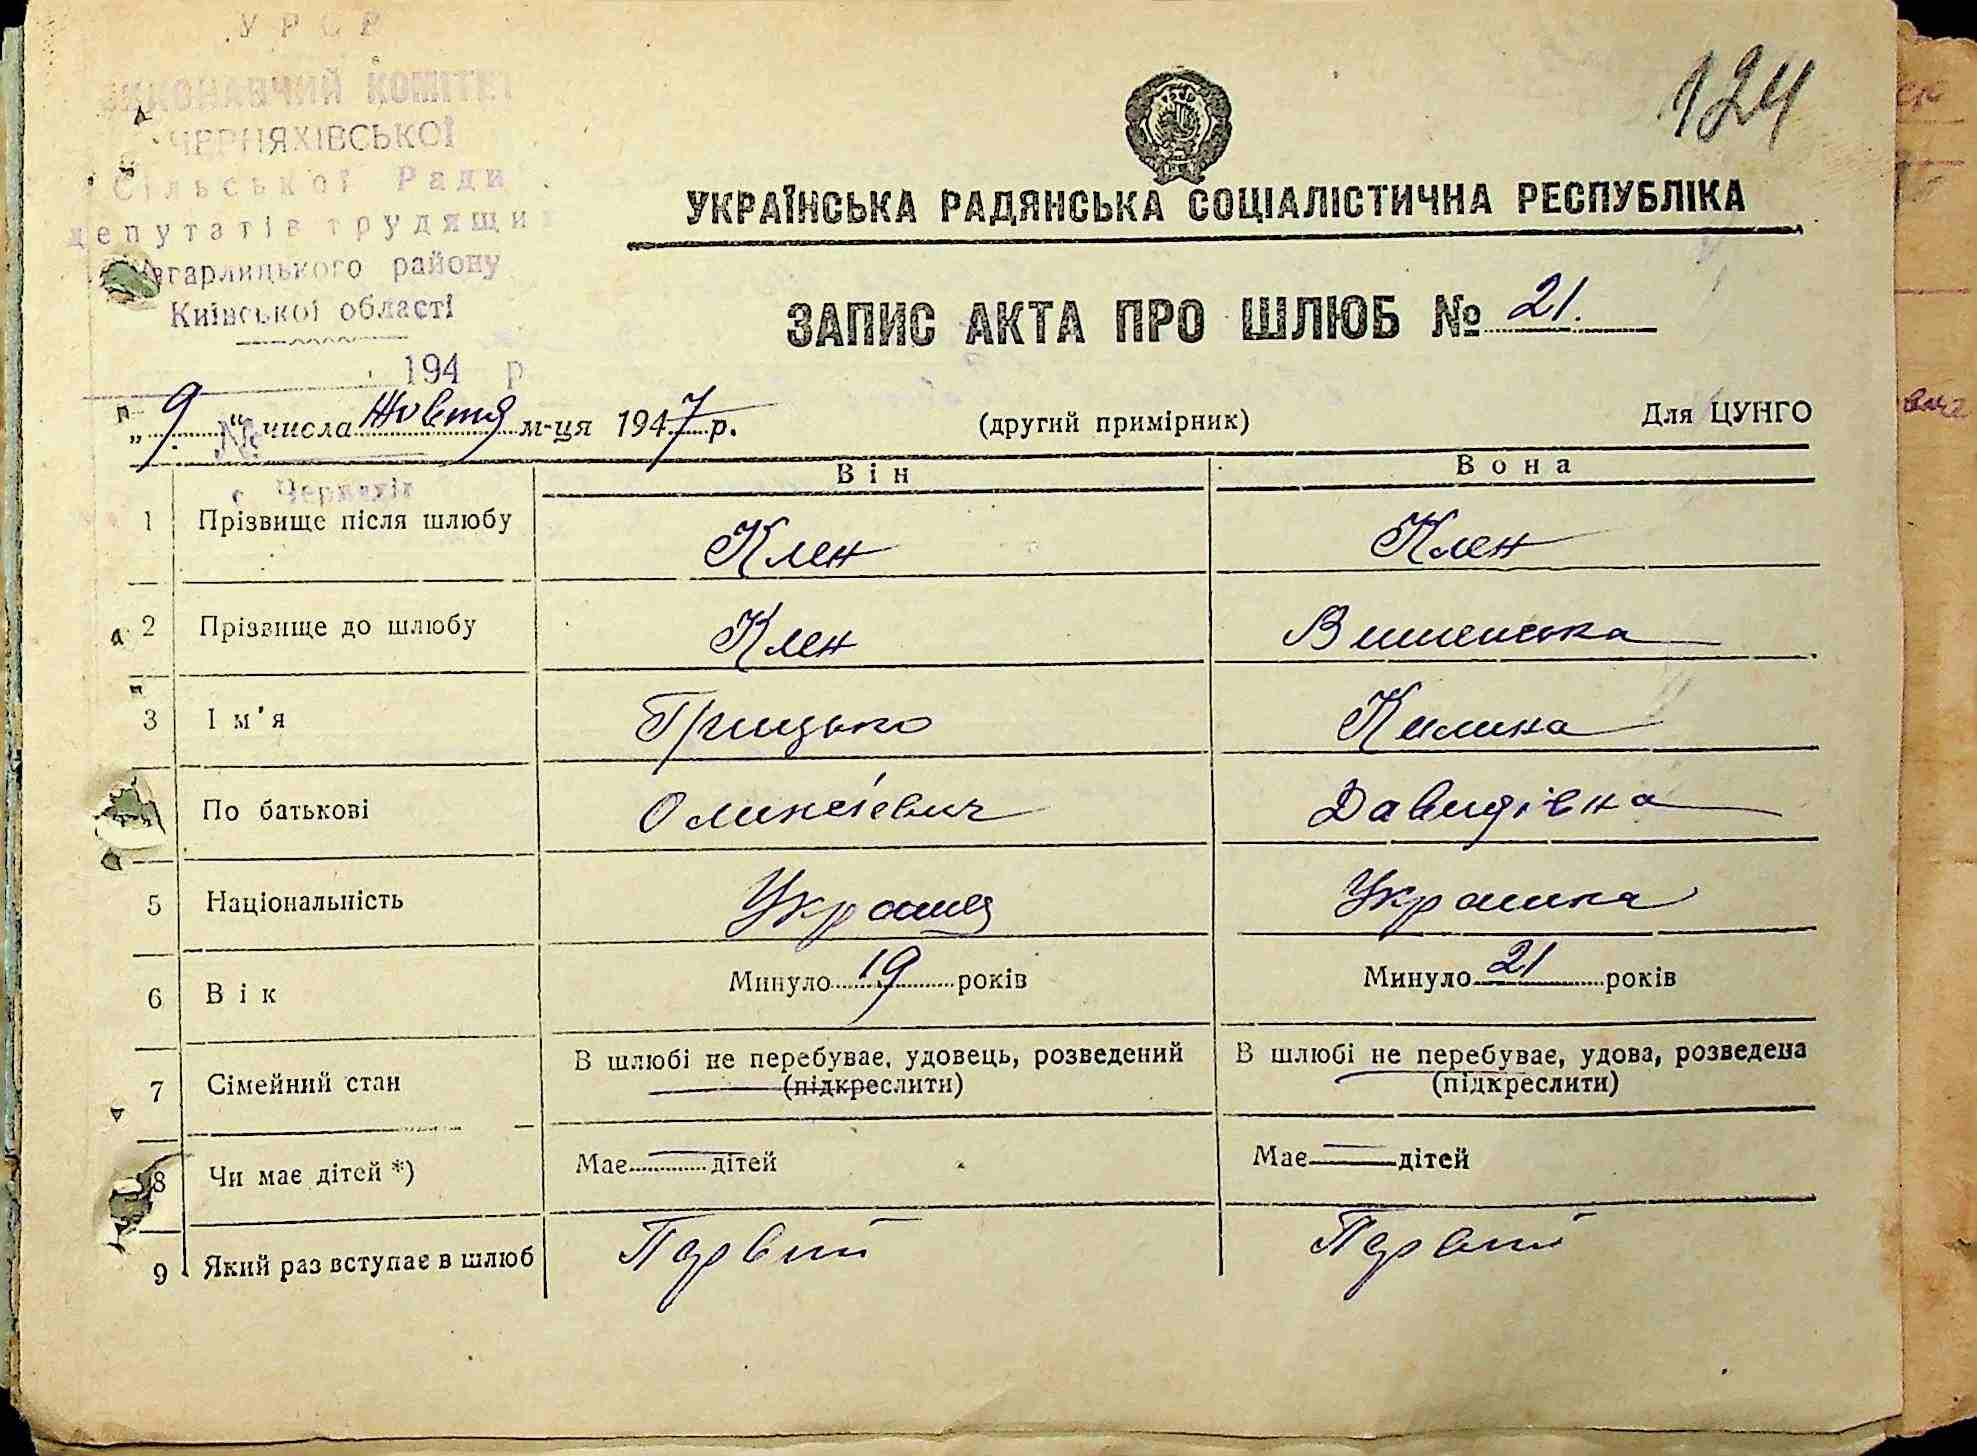 УРСР
ВИКОНАВЧИЙ КОМІТЕТ
ЧЕРНЯХІВСЬКОЇ
Сільської Ради
депутатів трудящих
Кагарлицького району
Київської області
194 р
№
с Черняхів
124
УКРАЇНСЬКА РАДЯНСЬКА СОЦІАЛІСТИЧНА РЕСПУБЛІКА
ЗАПИС АКТА ПРО ШЛЮБ № 21.
„9“ числа Жовтня м-ця 1947 р. (другий примірник) Для ЦУНГО
Він Вона
1 Прізвище після шлюбу Клен Клен
2 Прізвище до шлюбу Клен Вишенська
3 Ім'я Грицько Килина
По батькові Олексієвич Давидівна
5 Національність Украінец Украинка
6 Вік Минуло 19 років Минуло 21 років
7 Сімейний стан В шлюбі не перебуває, удовець, розведений В шлюбі не перебуває, удова, розведена
(підкреслити) (підкреслити)
8 Чи має дітей *) Має — дітей Має — дітей
9 Який раз вступає в шлюб Первий Первий